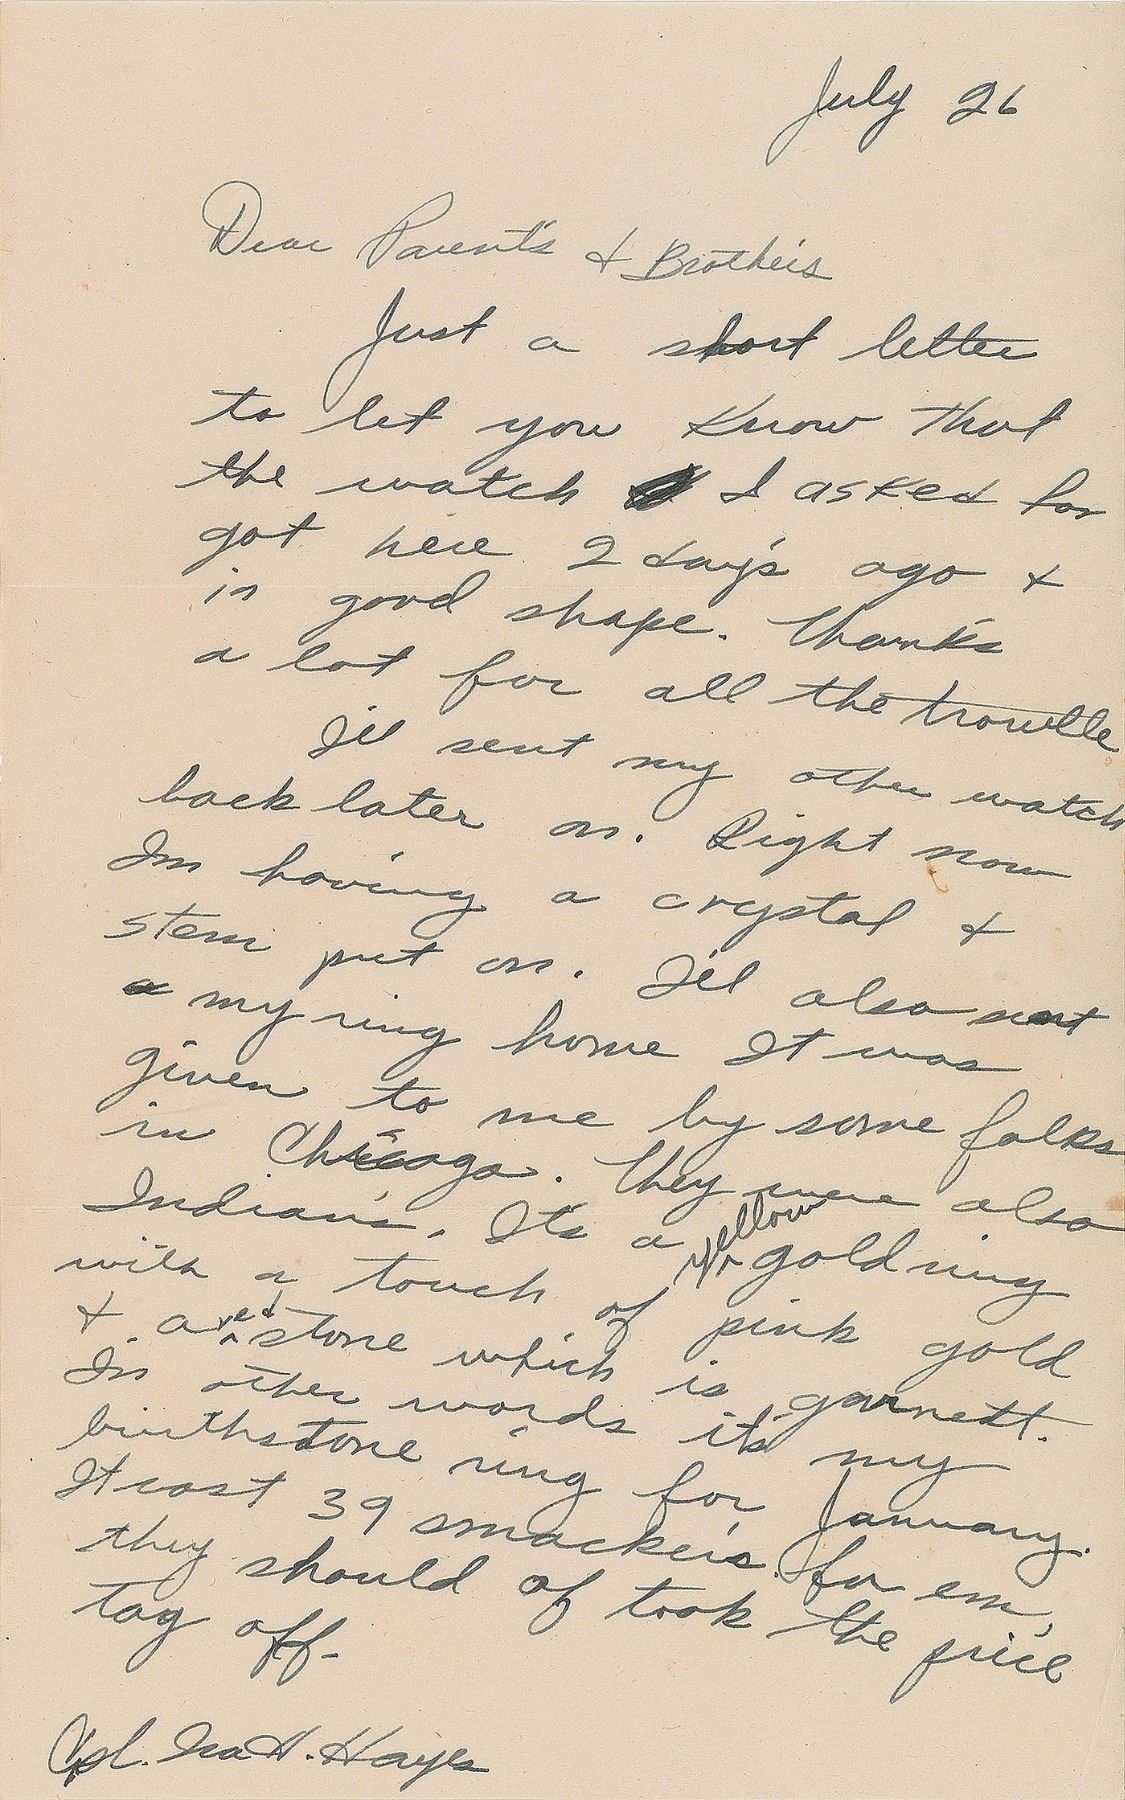 July 26
Dear Parent's & Brother's
Just a short letter
to let you know that
the watch I asked for
got here 2 day's ago &
in good shape. Thanks
a lot for all the trouble
I'll sent my other watch
back later on. Right now
Im having a crystal &
stem put on. I'll also sent
my ring home It was
given to me by some folks
in Chicago. They were also
Indian's. It's a yellow gold ring
with a touch of pink gold
& a red stone which is garnett.
In other words it's my
birthstone ring for January.
It cost 39 smacker's for em,
they should of took the price
tag off.
Cpl. Ira H. Hayes